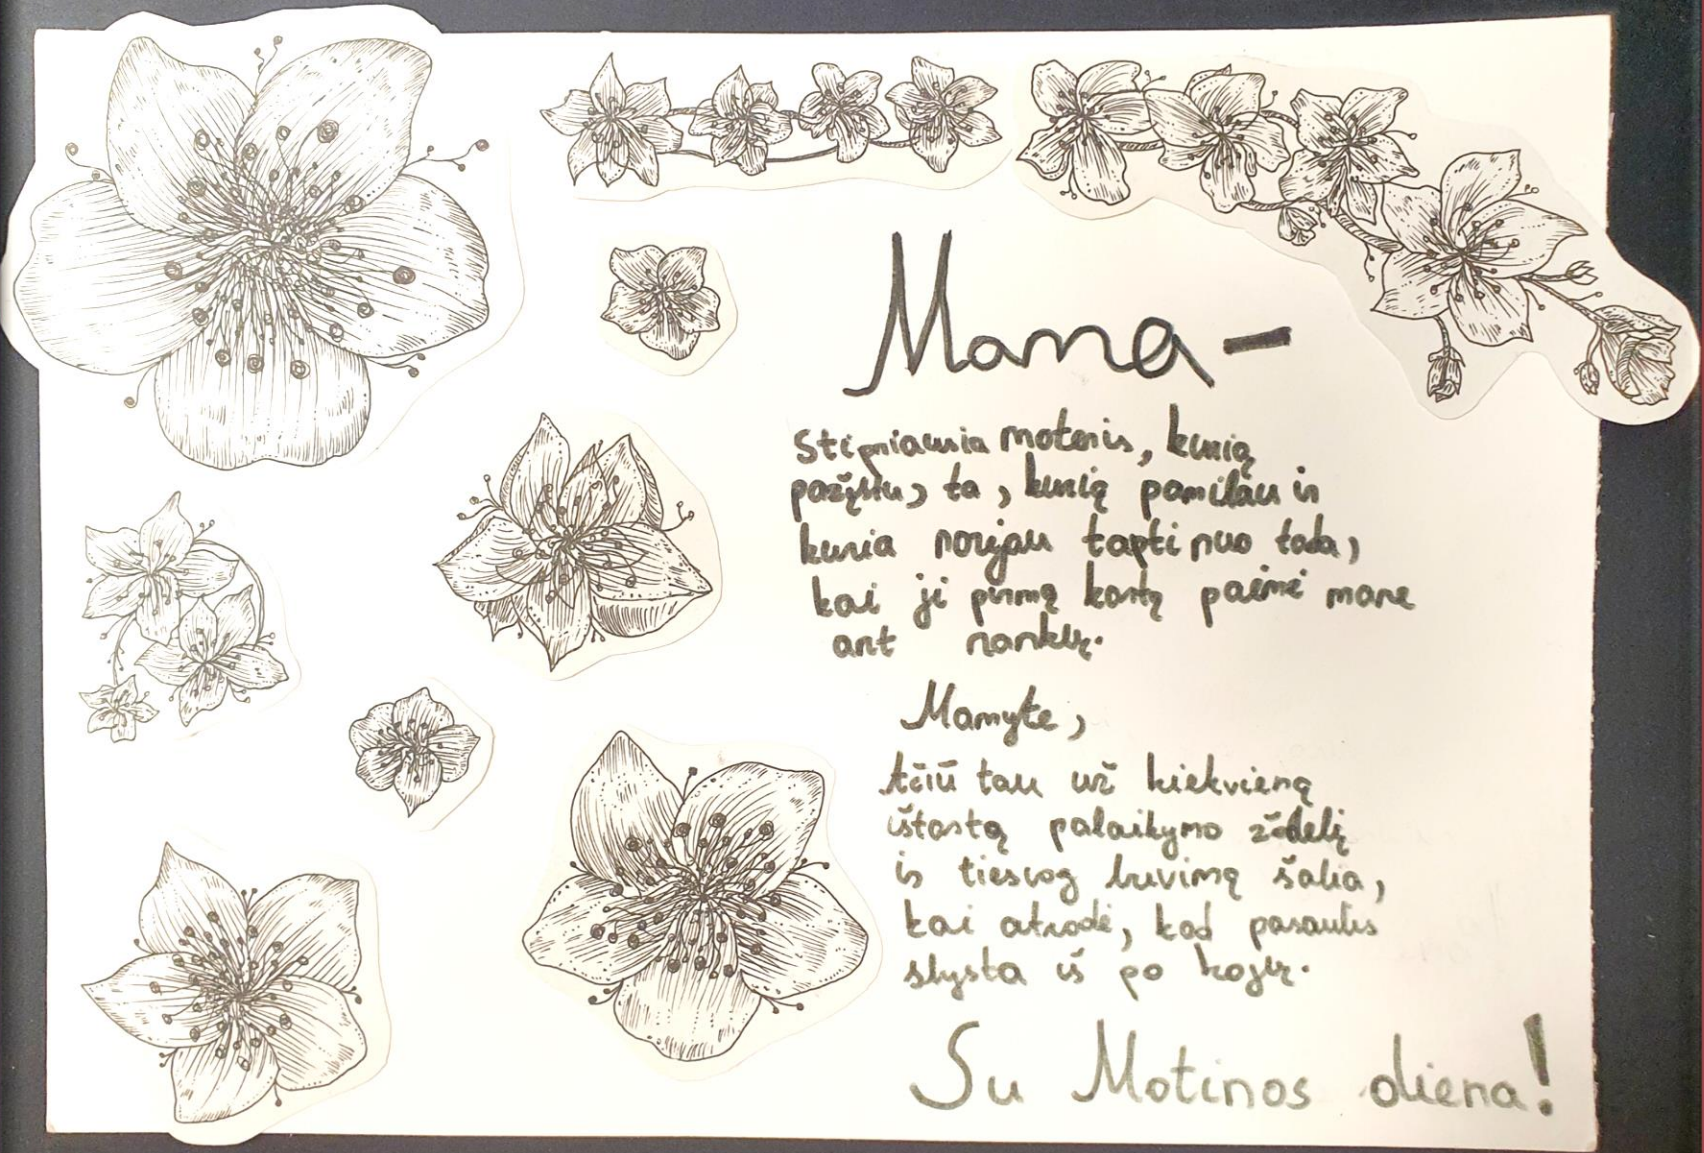 Mama –
Stipriausia moteris, kurią
pažįstu, ta, kurią pamilau ir
kuria norėjau tapti nuo tada,
kai ji pirmą kartą paėmė mane
ant rankų.
Mamyte,
Ačiū tau už kiekvieną
ištartą palaikymo žodelį
ir tiesiog buvimą šalia,
kai atrodė, kad pasaulis
slysta iš po kojų.
Su Motinos diena!